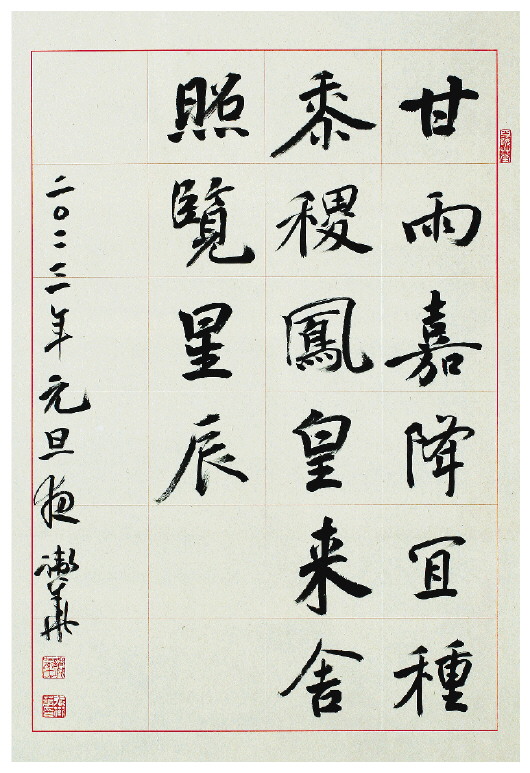 甘雨嘉降冝種
黍稷鳳皇来舍
照覽星辰
二〇二三年元旦夜